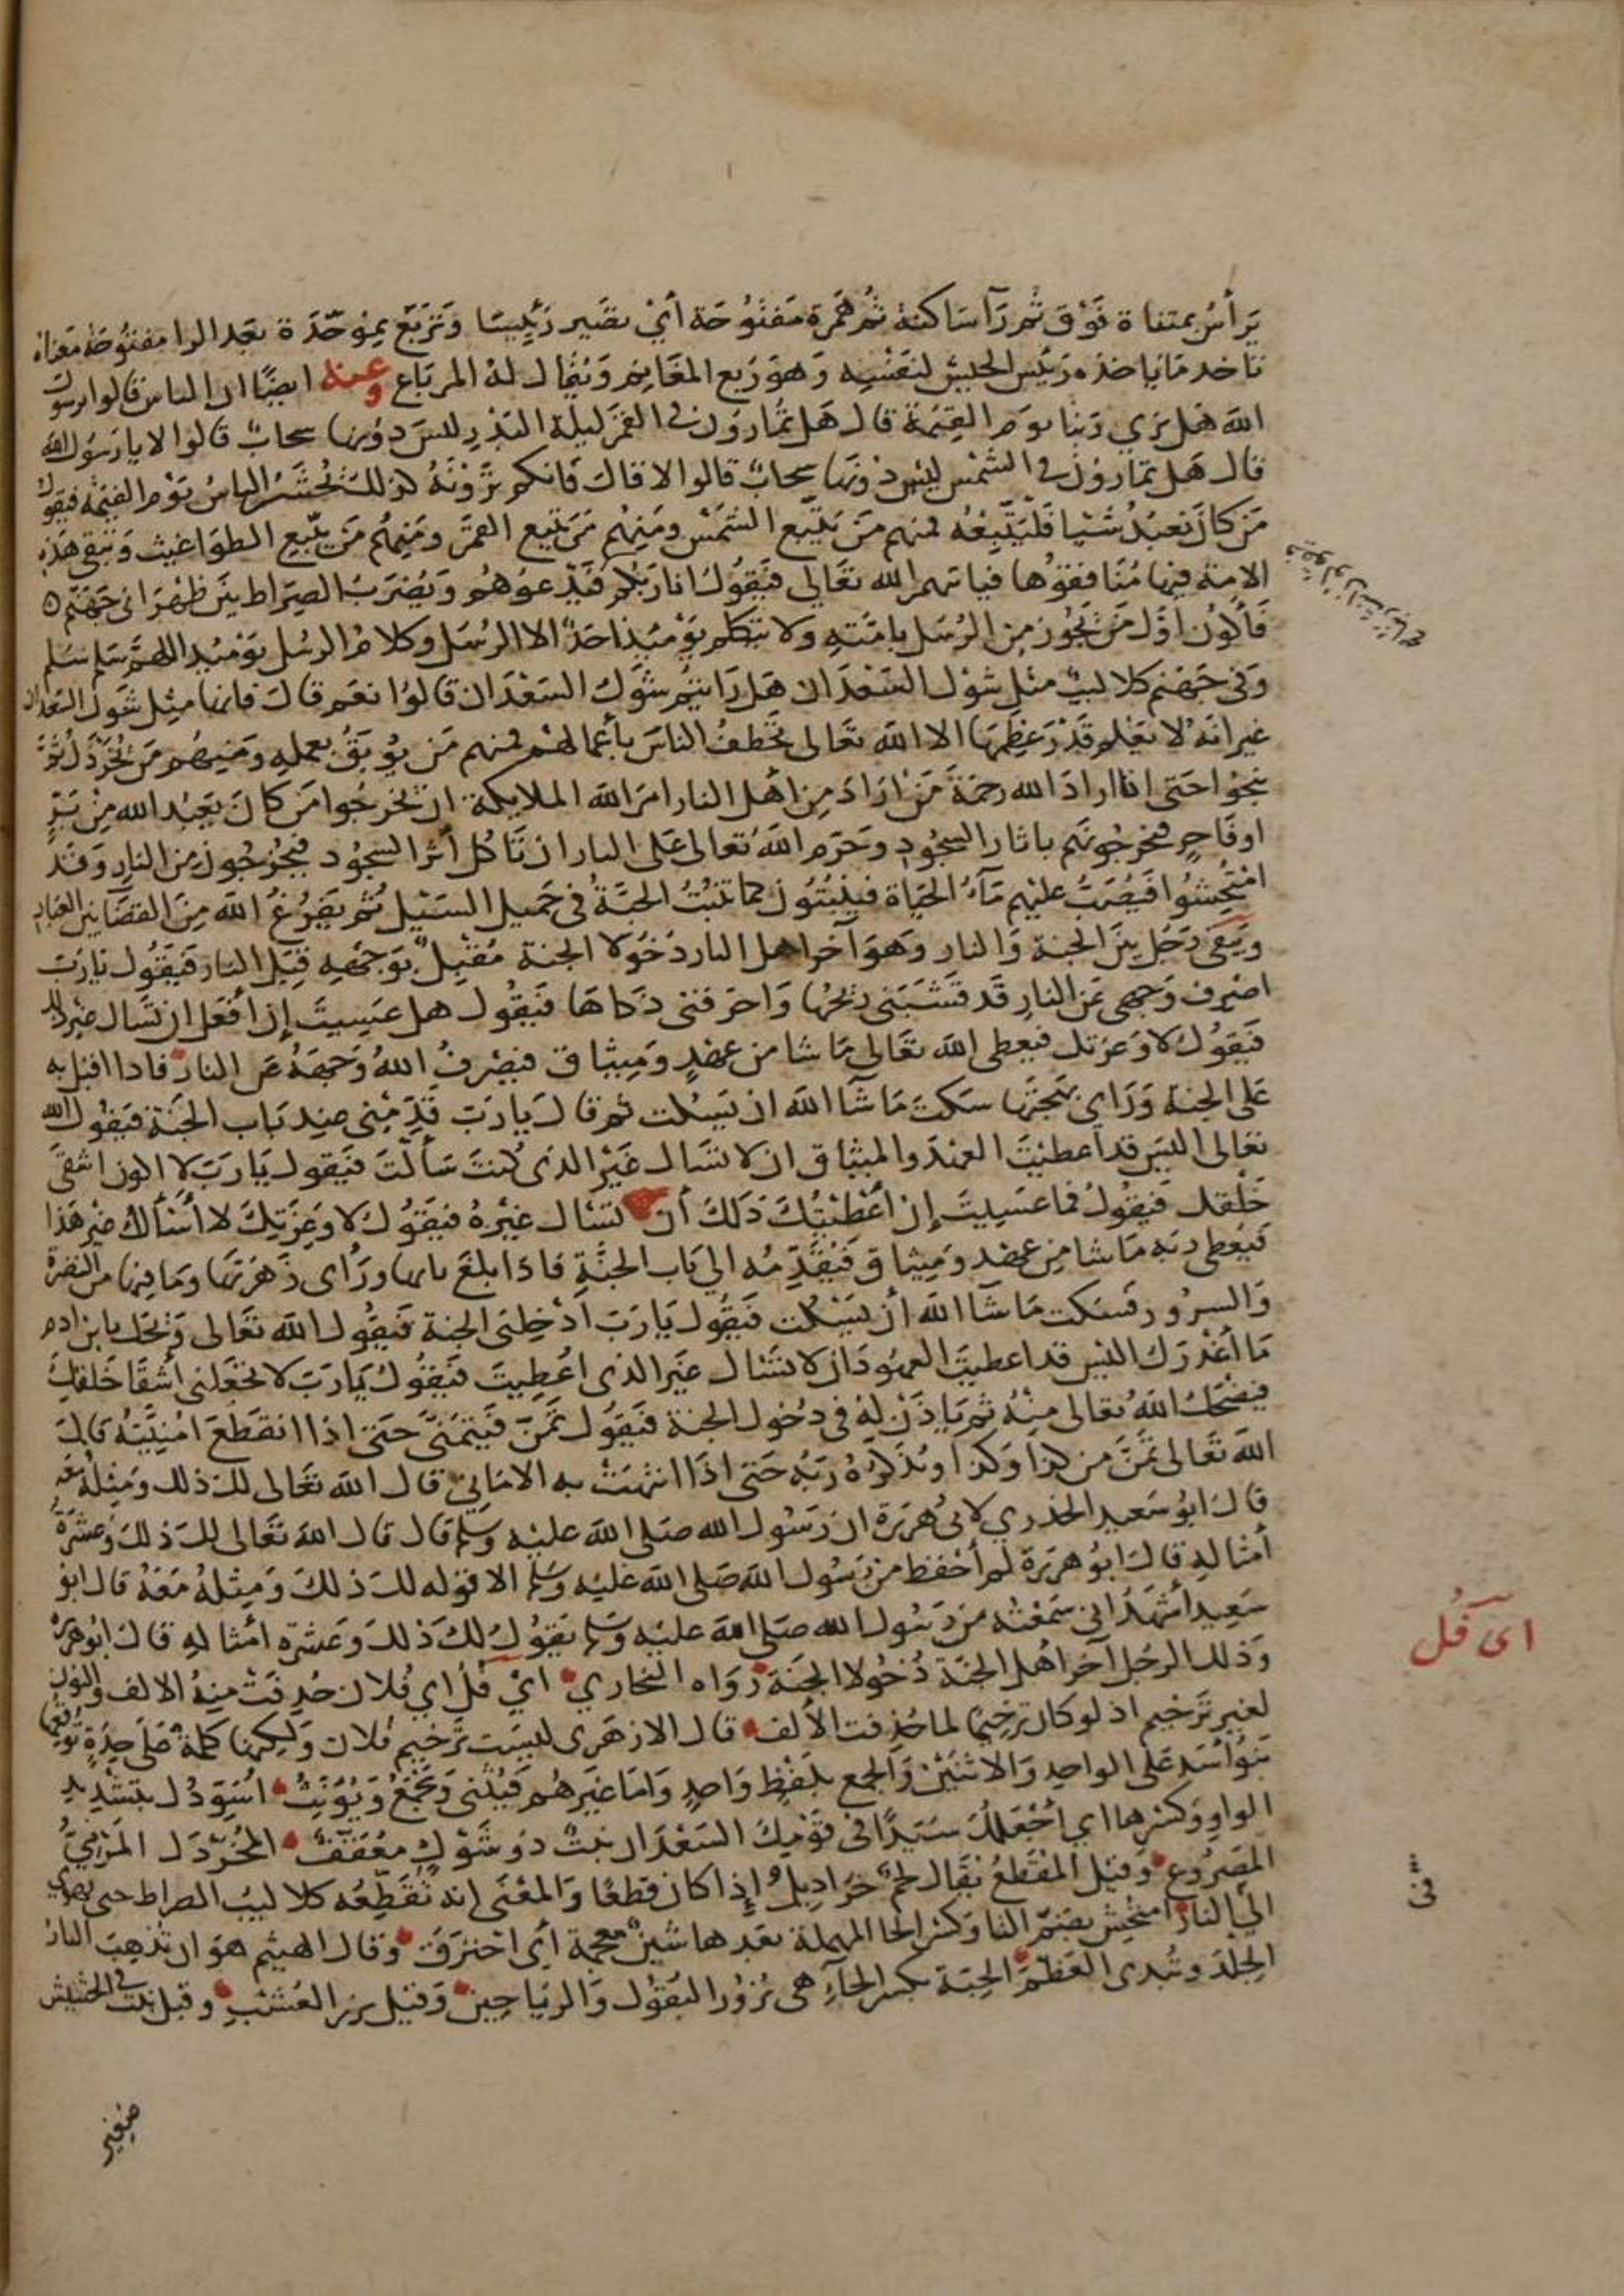 يَرأسُ بمثناة فَوْق ثم رَآ سَاكنة ثم هَمزة مَفتُوحَة أيْ تصَير رَئِيسًا وَتَربَع بمُوحّدَة بَعد الرا مفتُوحَة مَعناه
تاخد مَا ياخذه رَئيس الجيش لنَفْسِه وَهوَ رَبع المغَانِم وَيُقال لهُ المرباع وعنه ايضًا ان الناس قالوا يرسول
الله هَل نري رَبنا يوم القِيٰمة قال هَل تُمارُون في القمَر ليلَة البَدر ليسَ دوُنها سحابٌ قالوا لا يا رَسُول الله
قال هَل تمارُون في الشمْس ليْس دوُنَها سحابٌ قالوا لا قال فَانكم تَرَوْنَهُ كذلك يُحشَرُ الناسُ يَوْم القيٰمة فيقول
مَن كانَ يَعبُدُ شَيْيا فَليَتّبِعْهُ فمنهم مَن يَتّبع الشمْس ومنهُم مَن يَتّبع القمَر ومَنِهُم مَن يتّبع الطوَاغيت وَتبقى هَذِه
الامة فيها مُنَافقوُها فياتيهم الله تعَالي فيَقُولُ انا رَبُّكم فَيَدْعوُهُم وَيُضرَبُ الصِرَاط بَينَ ظهْرَاني جَهَنّم
فَأكُون اوَّل مَن يَجُوز مِن الرُسَل بامّتهِ ولا يتكلم يَوْمَيْذ احَدٌ الا الرُسَل وكلامُ الرسُل يوَمْيْد اللهمّ سَلِم سَلِم
وَفي جَهَنم كلاليبُ مثل شوْك السَعْدَان هَل رَايتُم شَوَك السَعْدَان قالوُا نعَم قَالَ فَانها مِثِل شَوَك السَعدان
غَير انَهُ لا يعَلم قَدْرَ عِظَمِهَا الا الله تعَالى تَخطَفُ الناسَ بأعمالهِم فمنهم مَن يُوبَقُ بعملهِ ومَنِهُم مَن يُخَرْدَل ثُمّ
يَنجُوا حَتى اذا ارادَ الله رحمَةَ مَنْ ارَادَ مِن اهَل النار امَر الله الملايكة ان يُخرجُوا مَن كانَ يَعبُد الله مِنْ بَرٍّ
او فَاجِرٍ فيُخرجُونَهم باثار السجُود وحَرمَ الله تعالى عَلى النار ان تَأكُل أثرَ السجُود فيَخْرُجُونَ مِن النارِ وَقَد
امْتُحِشُوا فيُصَبُّ عَليْهم مَآءُ الحَيَاة فيَنْبُتُون كما تَنبُتُ الحِبَّةُ في حَميل السَيْل ثُم يَفرُغُ الله مِنَ القَضَا بَين العِبادِ
ويَبقَى رَجُل بَينَ الجنة وَالنار وَهوَ آخرُ اهل النار دُخُولا الجنة مُقبِلٌ بوَجهِهِ قِبَل النار فَيَقُول يَارَبّ
اصْرِف وَجهى عَن النارِ قَد قَشَبَني رِيحُها وَاحرقني ذكاهَا فَيَقُول هل عَسِيتَ إن أفعَل ان تَسَال غيْر ذلك
فَيقُولُ لا وَعزتك فيعطى الله تعَالى مَا شا من عَهْدٍ وَمِيثاق فيَصْرِفُ اللهُ وَجهَهُ عَن النار فاذا اقبل به
عَلى الجنة وَرَاى بَهْجَتَها سَكتَ مَا شَآ الله ان يسكت ثم قالَ يَارَبّ قَدِّمْنِى عِند بَاب الجَنة فيقُول الله
تعَالى اليسَ قد اعطيْتَ العهْدَ والميثاق ان لا تسَال غَيْر الذي كنتَ سَألْتَ فيَقُول يَارَبّ لا اكون اشقَى
خَلقِك فَيقُولُ فما عسَيتَ إن أعْطيْتُكَ ذَلكَ أن تسَال غيْرهُ فيَقُولُ لا وَعِزَتِكَ لا أسَألُكَ غيْر هَذا
فَيُعْطِي رَبه مَا شا مِن عَهدٍ وَمِيثاق فَيُقَدِّمهُ الي بَاب الجنَّة فَاذا بلَغَ بابها ورَأى زَهرَتَها ومَا فيها من النضرَة
وَالسرُور فسَكت مَا شَا الله أن يَسْكت فَيَقُول يَارَبّ ادخِلني الجنة فَيَقُول الله تعَالى وَيحَك يابن ادم
مَا أغْدَرَك اليس قد اعطيتَ العهُود ان لا تسَال غَير الذى اعُطِيتَ فَيَقُولُ يَارَبّ لا تجَعَلني أشقَا خَلقِكَ
فيَضْحَكُ الله تعَالى مِنْهُ ثم يَاذَن لهُ في دُخول الجنة فيَقُول تَمَنَّ فَيتمَنّى حَتى اذا انقَطعَ امْنِيَّتُهُ قالَ
الله تعَالى تَمَنَّ من كذا وَكذا ويُذَكِّرُهُ رَبّهُ حَتى اذَا انتهَتْ به الامَاني قال الله تعَالى لك ذلك وَمِثلُهُ معَه
قال ابوُ سَعيد الخدري لابي هُرَيرَة ان رَسُول الله صَلى الله عليْه وسَلم قال قال الله تعَالى لكَ ذلكَ وَعَشرَةُ
أمثالهِ قالَ ابوُ هريرَة لم أحْفظ من رَسُول الله صَلى الله عَليْه وسَلم الا قوله لك ذلكَ وَمِثلهُ مَعَهُ قال ابوُ
سَعِيد أشهَدُ اني سَمَعْتُه من رَسُول الله صَلى الله عليْه وسَلم يقُولُ لكَ ذلكَ وَعَشرَة امثالهِ قالَ ابوُ هريرَة
وَذلك الرجُل آخرُ اهْل الجَنة دُخُولا الجَنة رَوَاه البخاري ايْ فُلُ اي فُلان حُذِفَتْ مِنهُ الالف والنون
لغير تَرخيم اذ لو كان تَرخِيمًا لما حُذِفت الألف قال الازهَرى لَيسَت تَرْخيم فُلان وَلكِنها كلمة عَلَى حِدَةٍ تُوقِعُها
بَنُو أسَد عَلى الواحِدِ وَالاثنَيْنِ وَالجمْع بلَفْظٍ وَاحِدٍ وَامَا غيَرهُم فَيُثَنّى وَيَجْمَعُ وَيُؤنِثُ أُسَوِدْك بتشْدِيد
الواو وَكسْرِها اي أجْعَلكَ سَيّدًا في قَوْمِكَ السَعْدَان نبتٌ ذو شَوْك مُعَقَّف المُخَرْدَل المَرْمِيُّ
المَصْرُوع وَقيل المُقَطَّعُ يقال لحم خرَاديل إذا كان قطعًا وَالمعْنى انه تُقَطِّعُه كلاليبُ الصراط حتى يهوي
الي النار امتحِشَ بضَمّ التا وَكسْر الحا المهملة بعدها شين معجمة أى احترَق وَقال الهيثم هو ان تذهبَ النارُ
الجِلدَ وتُبدى العَظْمَ الحِبّة بكسر الحآءِ هى بُزُورُ البُقُول وَالرَيَاحِين وَقيل بزر العُشْب وقيل نبت في الحشيش
صغير
اى فُل